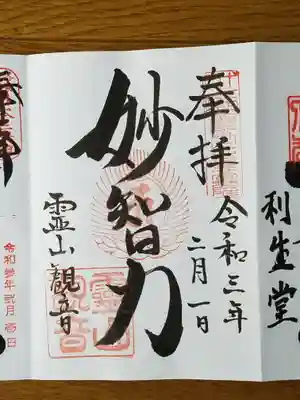 利生堂
奉拝
令和三年
二月一日
妙智力
霊山観音
霊山
観音
令和参年弐月壱日